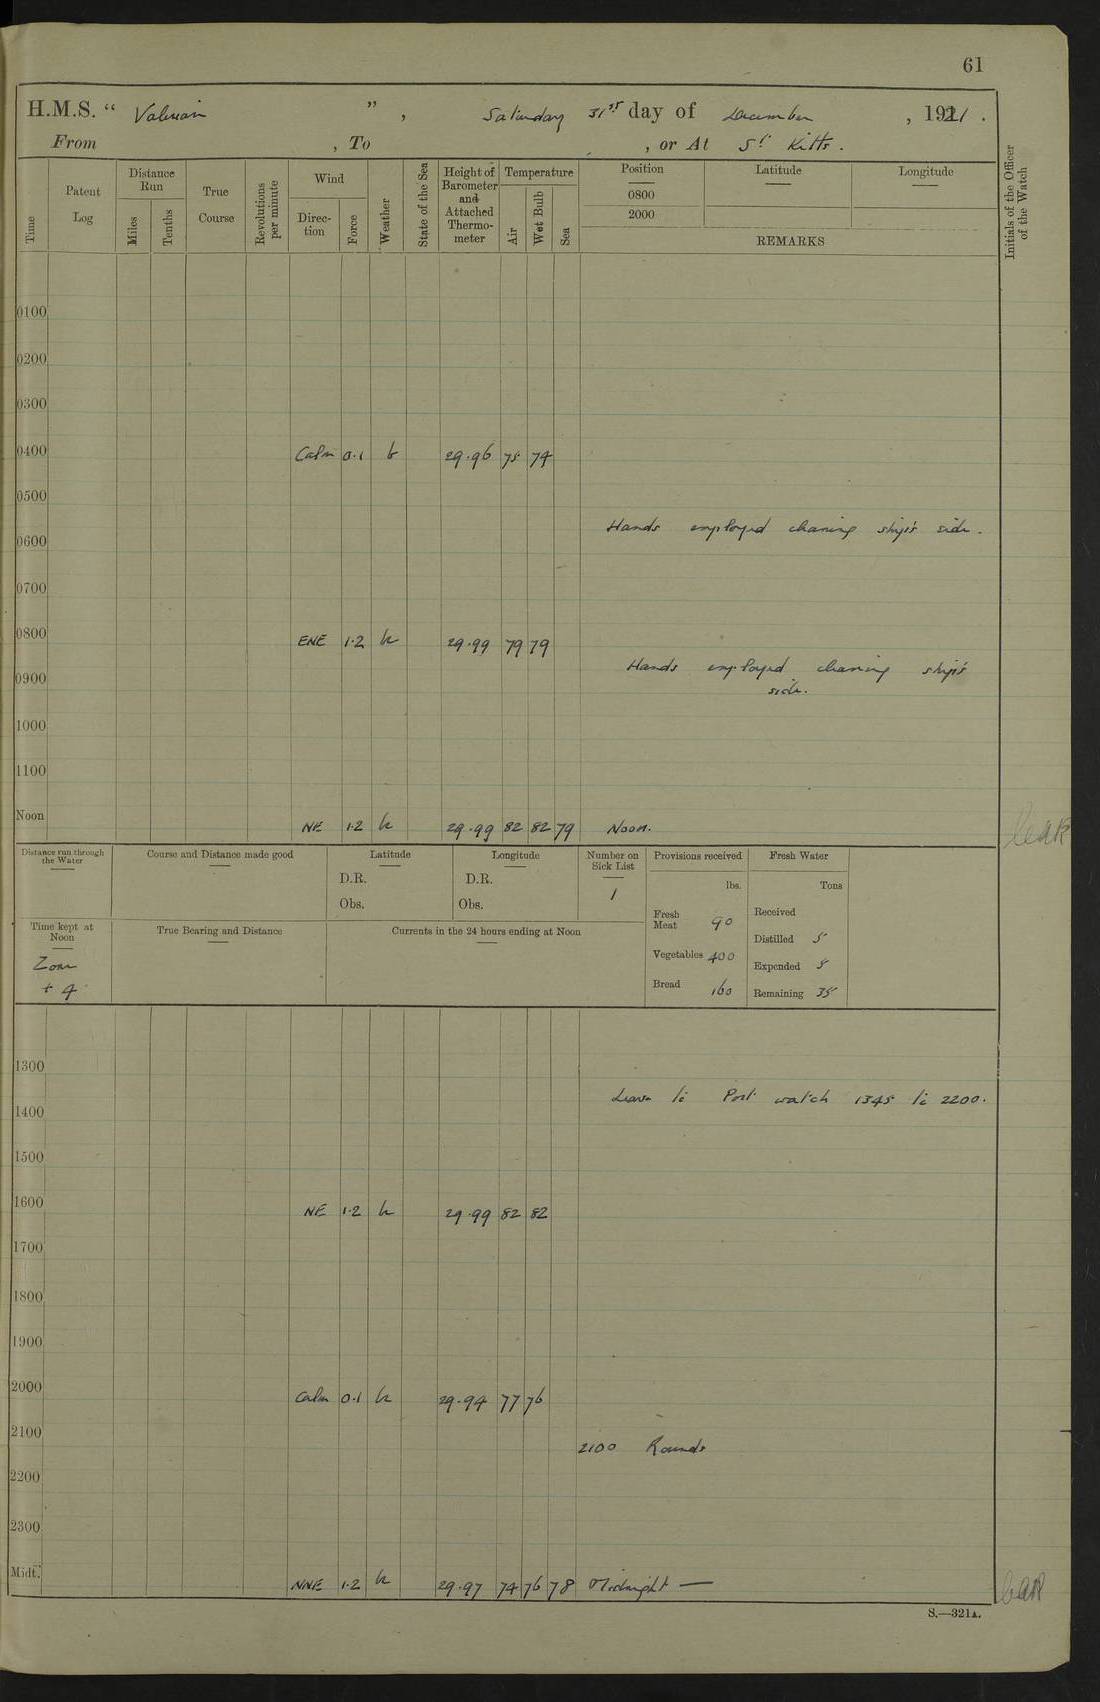 61
H.M.S. " Valerian " , Saturday 31st day of December , 1921 .
From , To , or At St Kitts .
Time
Patent Log
Distance Run
Miles
Tenths
True Course
Revolutions per minute
Wind
Direc-tion
Force
Weather
State of the Sea
Height of Barometer and Attached Thermo-meter
Temperature
Air
Wet Bulb
Sea
Position
0800
2000
Latitude
Longitude
REMARKS
Initials of the Officer of the Watch
0100
0200
0300
0400 Calm 0.1 b 29.96 75 74
0500
Hands employed cleaning ship's side .
0600
0700
0800 ENE 1.2 bc 29.99 79 79
Hands employed cleaning ship's
0900
side .
1000
1100
Noon NE 1.2 bc 29.99 82 82 79 Noon.
Distance run through the Water
Course and Distance made good
Latitude
D.R.
Obs.
Longitude
D.R.
Obs.
Number on Sick List
1
Provisions received
lbs.
Fresh Meat 90
Vegetables 400
Bread 160
Fresh Water
Tons
Received
Distilled 5
Expended 5
Remaining 35
Time kept at Noon
Zone
+ 4
True Bearing and Distance
Currents in the 24 hours ending at Noon
1300
Leave to Port watch 1345 to 2200.
1400
1500
1600 NE 1.2 bc 29.99 82 82
1700
1800
1900
2000 Calm 0.1 bc 29.94 77 76
2100
2100 Rounds
2200
2300
Midt. NNE 1.2 bc 29.97 74 76 78 Midnight —
S.—321A.